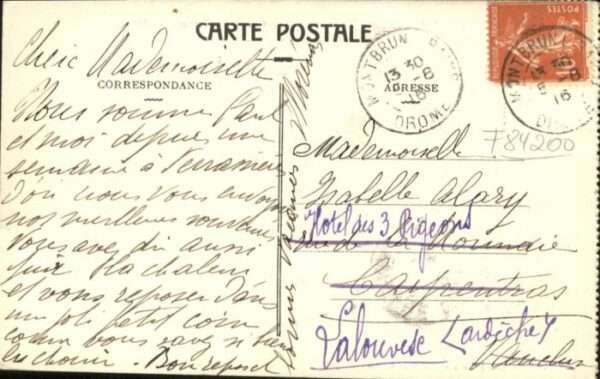 CARTE POSTALE
CORRESPONDANCE
ADRESSE
Chère Mademoiselle
Nous sommes Paul
et moi depuis une
semaine à
d'où nous vous envoyons
nos meilleurs souvenirs
Vous avez dû aussi
fuir la chaleur
et vous reposer dans
un joli petit coin
comme vous savez si bien
en choisir. Bon repos et
MONTBRUN
13 30
-8
16
DROME
MONTBRUN
16
F84200
Mademoiselle
Isabelle Alary
Hotel des 3 Pigeons
rue de la Monnaie
Carpentras
Lalouvesc (Ardèche)
Vaucluse